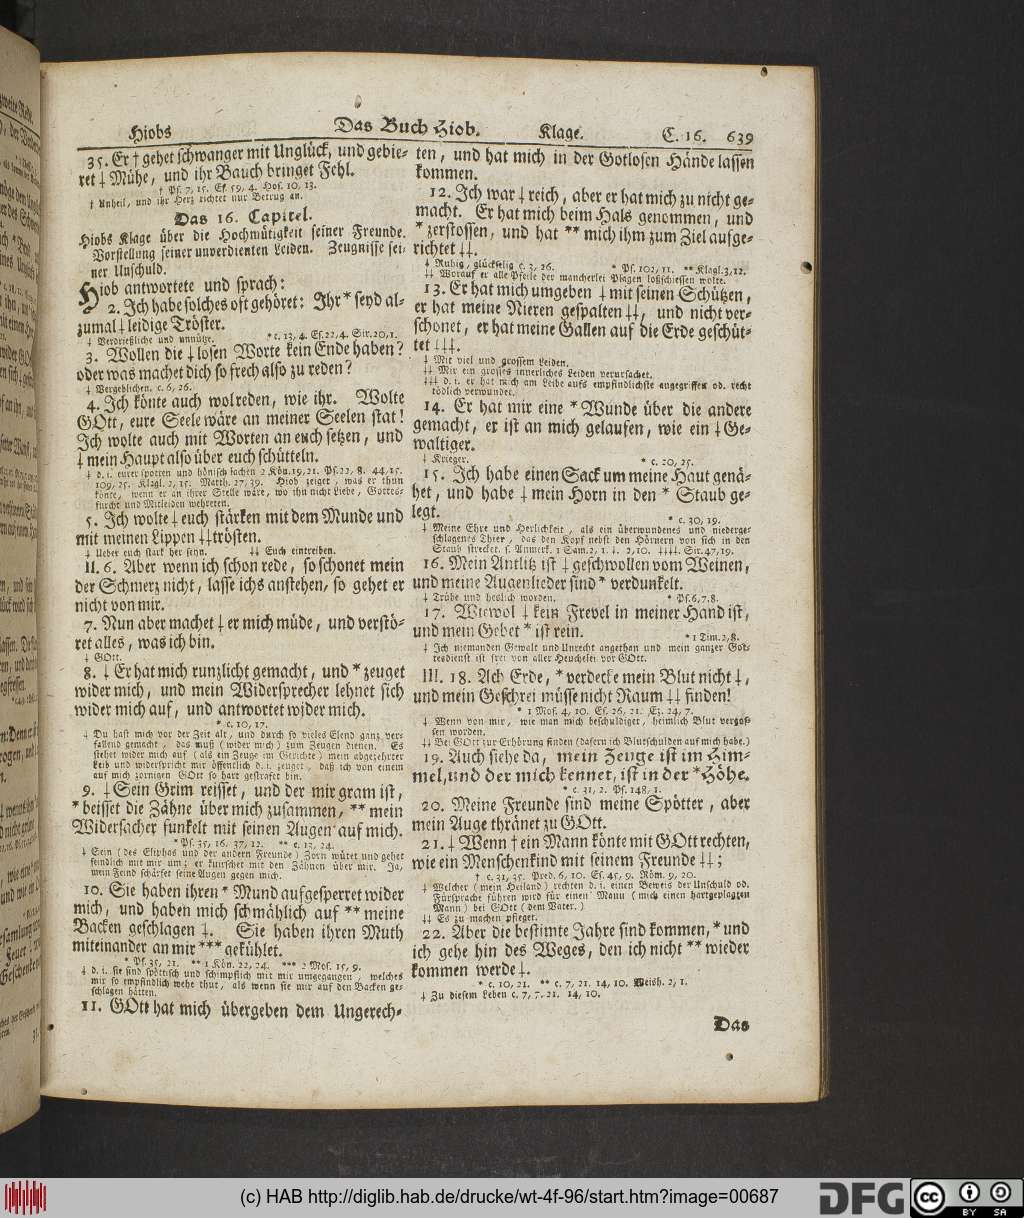 Hiobs Das Buch Hiob. Klage. C. 16. 639
35. Er † gehet schwanger mit Unglück, und gebie-
ret ‡ Mühe, und ihr Bauch bringet Fehl.
† Ps. 7, 15. Es. 59, 4. Hos. 10, 13.
‡ Unheil, und ihr Herz richtet nur Betrug an.
Das 16. Capitel.
Hiobs Klage über die Hochmütigkeit seiner Freunde.
Vorstellung seiner unverdienten Leiden. Zeugnisse sei-
ner Unschuld.
Hiob antwortete und sprach:
2. Ich habe solches oft gehöret: Ihr * seyd al-
zumal ‡ leidige Tröster.
‡ Verdrießliche und unnütze. * c. 13, 4. Es. 22, 4. Sir. 20, 1.
3. Wollen die ‡ losen Worte kein Ende haben?
oder was machet dich so frech also zu reden?
‡ Vergeblichen. c. 6, 26.
4. Ich könte auch wol reden, wie ihr. Wolte
GOtt, eure Seele wäre an meiner Seelen stat!
Ich wolte auch mit Worten an euch setzen, und
‡ mein Haupt also über euch schütteln.
‡ d. i. eurer spotten und hönisch lachen 2 Kön. 19, 21. Ps. 22, 8. 44, 15.
109, 25. Klagl. 2, 15. Matth. 27, 39. Hiob zeiget, was er thun
könte, wenn er an ihrer Stelle wäre, wo ihn nicht Liebe, Gottes-
furcht und Mitleiden wehreten.
5. Ich wolte ‡ euch stärken mit dem Munde und
mit meinen Lippen ‡‡ trösten.
‡ Ueber euch stark her seyn. ‡‡ Euch eintreiben.
II. 6. Aber wenn ich schon rede, so schonet mein
der Schmerz nicht, lasse ichs anstehen, so gehet er
nicht von mir.
7. Nun aber machet ‡ er mich müde, und verstö-
ret alles, was ich bin.
‡ GOtt.
8. ‡ Er hat mich runzlicht gemacht, und * zeuget
wider mich, und mein Widersprecher lehnet sich
wider mich auf, und antwortet wider mich.
* c. 10, 17.
‡ Du hast mich vor der Zeit alt, und durch so vieles Elend ganz ver-
fallend gemacht, das muß (wider mich) zum Zeugen dienen. Es
stehet wider mich auf (als ein Zeuge im Gerichte) mein abgezehrter
Leib und widerspricht mir öffentlich d. i. zeuget, daß ich von einem
auf mich zornigen GOtt so hart gestrafet bin.
9. ‡ Sein Grim reisset, und der mir gram ist,
* beisset die Zähne über mich zusammen, ** mein
Widersacher funkelt mit seinen Augen auf mich.
* Ps. 35, 16. 37, 12. ** c. 13, 24.
‡ Sein (des Eliphas und der andern Freunde) Zorn wütet und gehet
feindlich mit mir um; er knirschet mit den Zähnen über mir. Ja,
mein Feind schärfet seine Augen gegen mich.
10. Sie haben ihren * Mund aufgesperret wider
mich, und haben mich schmählich auf ** meine
Backen geschlagen ‡. Sie haben ihren Muth
miteinander an mir *** gekühlet.
* Ps. 35, 21. ** 1 Kön. 22, 24. *** 2 Mos. 15, 9.
‡ d. i. sie sind spöttisch und schimpflich mit mir umgegangen, welches
mir so empfindlich wehe thut, als wenn sie mir auf den Backen ge-
schlagen hätten.
11. GOtt hat mich übergeben dem Ungerech-
ten, und hat mich in der Gotlosen Hände lassen
kommen.
12. Ich war ‡ reich, aber er hat mich zu nicht ge-
macht. Er hat mich beim Hals genommen, und
* zerstossen, und hat ** mich ihm zum Ziel aufge-
richtet ‡‡.
‡ Ruhig, glückselig c. 3, 26. * Ps. 102, 11. ** Klagl. 3, 12.
‡‡ Worauf er alle Pfeile der mancherlei Plagen loßschiessen wolte.
13. Er hat mich umgeben ‡ mit seinen Schützen,
er hat meine Nieren gespalten ‡‡, und nicht ver-
schonet, er hat meine Gallen auf die Erde geschüt-
tet ‡‡‡.
‡ Mit viel und grossem Leiden.
‡‡ Mir ein grosses innerliches Leiden verursachet.
‡‡‡ d. i. er hat mich am Leibe aufs empfindlichste angegriffen od. recht
tödlich verwundet.
14. Er hat mir eine * Wunde über die andere
gemacht, er ist an mich gelaufen, wie ein ‡ Ge-
waltiger.
‡ Krieger. * c. 20, 25.
15. Ich habe einen Sack um meine Haut genä-
het, und habe ‡ mein Horn in den * Staub ge-
legt.
* c. 30, 19.
‡ Meine Ehre und Herlichkeit, als ein überwundenes und niederge-
schlagenes Thier, das den Kopf nebst den Hörnern von sich in den
Staub strecket. s. Anmerk. 1 Sam. 2, 1. ‡. 2, 10. ‡‡‡‡. Sir. 47, 19.
16. Mein Antlitz ist ‡ geschwollen vom Weinen,
und meine Augenlieder sind * verdunkelt.
‡ Trübe und heßlich worden. * Ps. 6, 7. 8.
17. Wiewol ‡ kein Frevel in meiner Hand ist,
und mein Gebet * ist rein.
* 1 Tim. 2, 8.
‡ Ich niemanden Gewalt und Unrecht angethan und mein ganzer Got-
tesdienst ist frei von aller Heuchelei vor GOtt.
III. 18. Ach Erde, * verdecke mein Blut nicht ‡,
und mein Geschrei müsse nicht Raum ‡‡ finden!
* 1 Mos. 4, 10. Es. 26, 21. Ez. 24, 7.
‡ Wenn von mir, wie man mich beschuldiget, heimlich Blut vergos-
sen worden.
‡‡ Bei GOtt zur Erhörung finden (dafern ich Blutschulden auf mich habe.)
19. Auch siehe da, mein Zeuge ist im Him-
mel, und der mich kennet, ist in der * Höhe.
* c. 31, 2. Ps. 148, 1.
20. Meine Freunde sind meine Spötter, aber
mein Auge thränet zu GOtt.
21. ‡ Wenn † ein Mann könte mit GOtt rechten,
wie ein Menschenkind mit seinem Freunde ‡‡;
† c. 31, 35. Pred. 6, 10. Es. 45, 9. Röm. 9, 20.
‡ Welcher (mein Heiland) rechten d. i. einen Beweis der Unschuld od.
Fürsprache führen wird für einen Mann (mich einen hartgeplagten
Mann) bei GOtt (dem Vater.)
‡‡ Es zu machen pfleget.
22. Aber die bestimte Jahre sind kommen, * und
ich gehe hin des Weges, den ich nicht ** wieder
kommen werde ‡.
* c. 10, 21. ** c. 7, 21. 14, 10. Weish. 2, 1.
‡ Zu diesem Leben c. 7, 7. 21. 14, 10.
Das
(c) HAB http://diglib.hab.de/drucke/wt-4f-96/start.htm?image=00687
DFG
cc BY SA